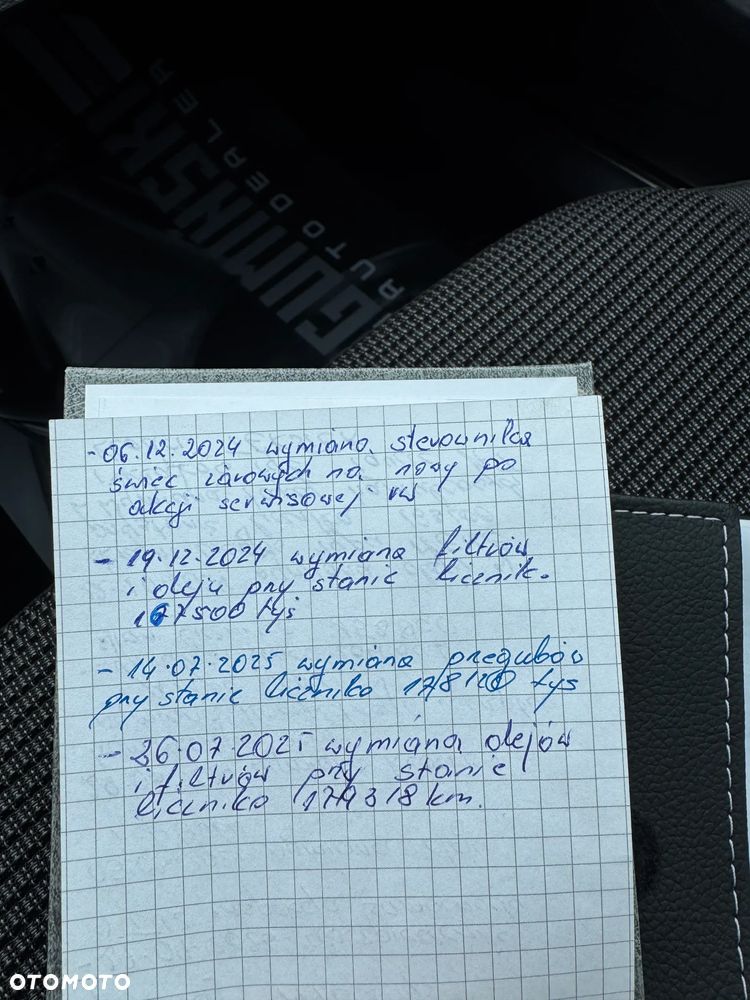 GUMIŃSKI
AUTO DEALER
- 06.12.2024 wymiana sterownika
świec żarowych na nowy po
akcji serwisowej vw
- 19.12.2024 wymiana filtrów
i oleju przy stanie licznik.
167500 tyś
- 14.07.2025 wymiana przegubów
przy stanie licznika 178120 tys
- 26.07.2025 wymiana olejów
i filtrów przy stanie
licznika 179318 km.
OTOMOTO